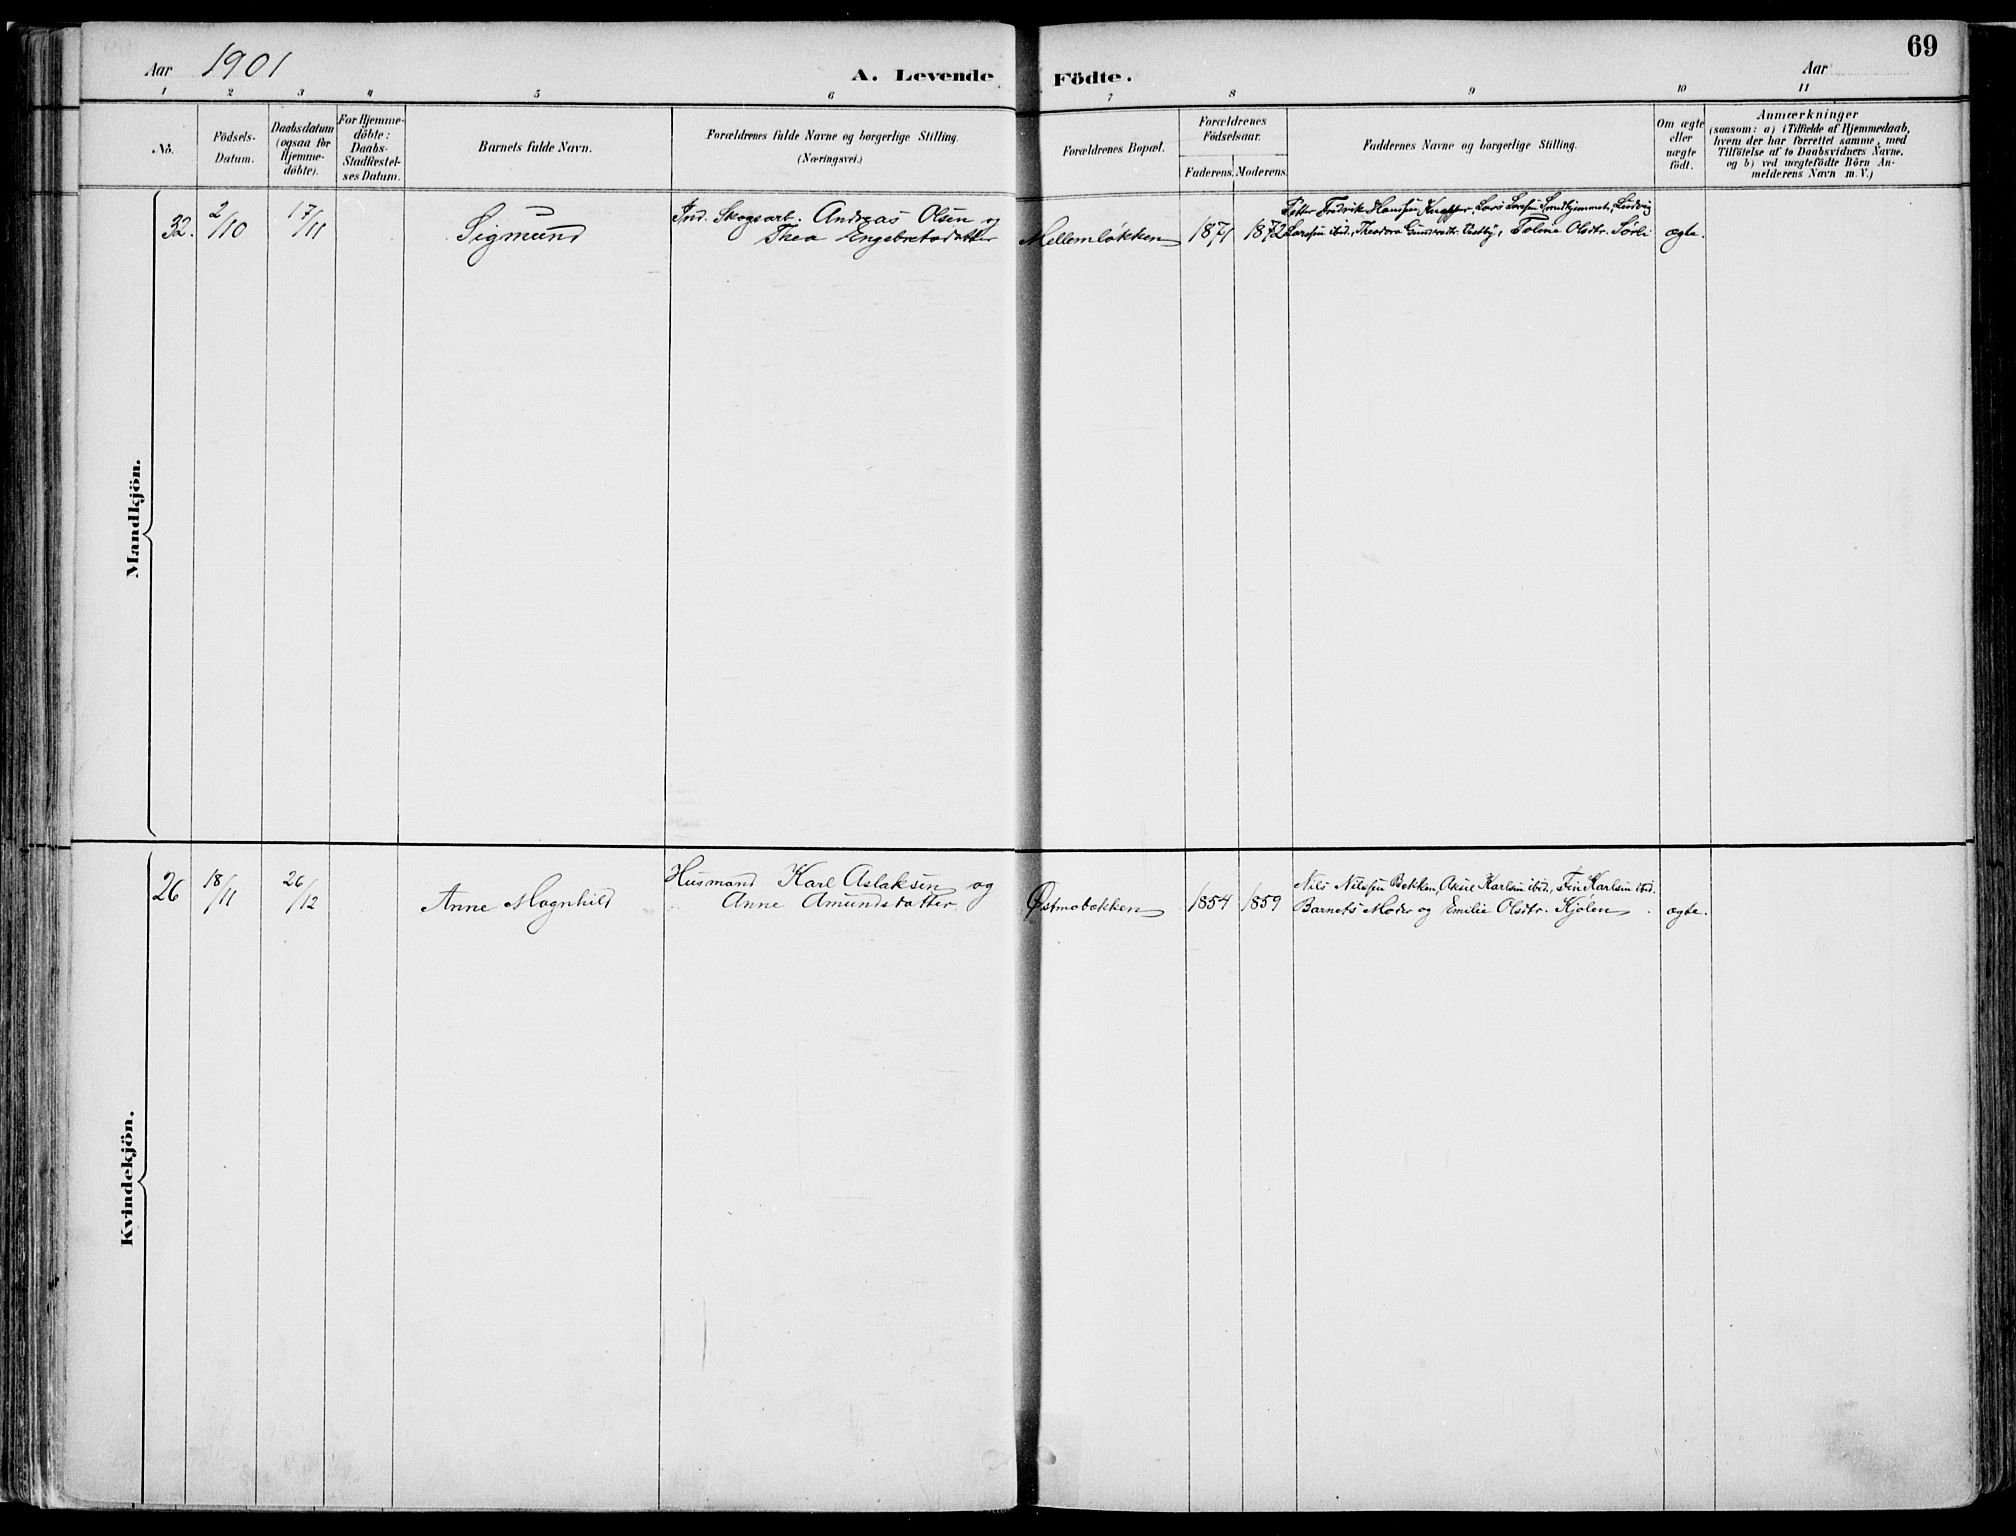 69
Aar 1901 A. Levende Födte. Aar
1 2 3 4 5 6 7 8 9 10 11
No.
Födsels-Datum.
Daabsdatum (ogsaa for Hjemme-döbte).
For Hjemme-döbte: Daabs-Stadfestel-ses Datum.
Barnets fulde Navn.
Forældrenes fulde Navne og borgerlige Stilling.
(Næringsvei.)
Forældrenes Bopæl.
Forældrenes Födselsaar.
Faderens. Moderens.
Faddernes Navne og borgerlige Stilling.
Om ægte eller uægte födt.
Anmærkninger
(saasom: a) i Tilfælde af Hjemmedaab,
hvem der har forrettet samme, med
Tilföielse af to Daabsvidners Navne.
og b) ved uægtefödte Börn An-
melderens Navn m. V.)
Mandkjön.
32. 2/10 17/11 Sigmund Ind. Skogsarb. Andreas Olsen og
Thea Engebretsdatter Mellemløkken 1871 1872 Petter Fredrik Hansen, Lars Larsen Smedhjemmet, Ludvig
Larsen ibd., Theodora Gundersdtr. Toline Olsdtr. Sørli ægte.
Kvindekjön.
26 18/11 26/12 Anne Magnhild Husmand Karl Aslaksen og
Anne Amundsdatter Østmobækken 1854 1859 Nils Nilssen Bekken, Aksel Karlsen ibd., Fin Karlsen ibd.
Barnets Moder og Emilie Olsdtr. Kjølen. ægte.